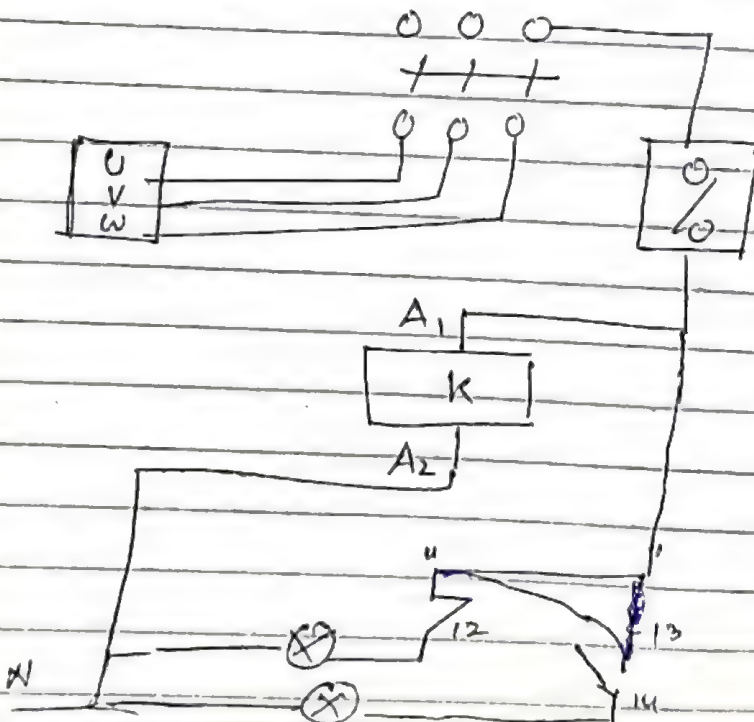 U
V
W
A1
K
A2
11
12
13
N
14